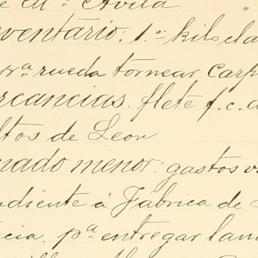 e Mª. Avila "
ventario: 1.º kilo ela
rª rueda tornear, Carp
rcancias. flete f. c. d
ltos de Leon
nado menor: gastos v
ndiente á Fabrica de
cia. pª entregar lan